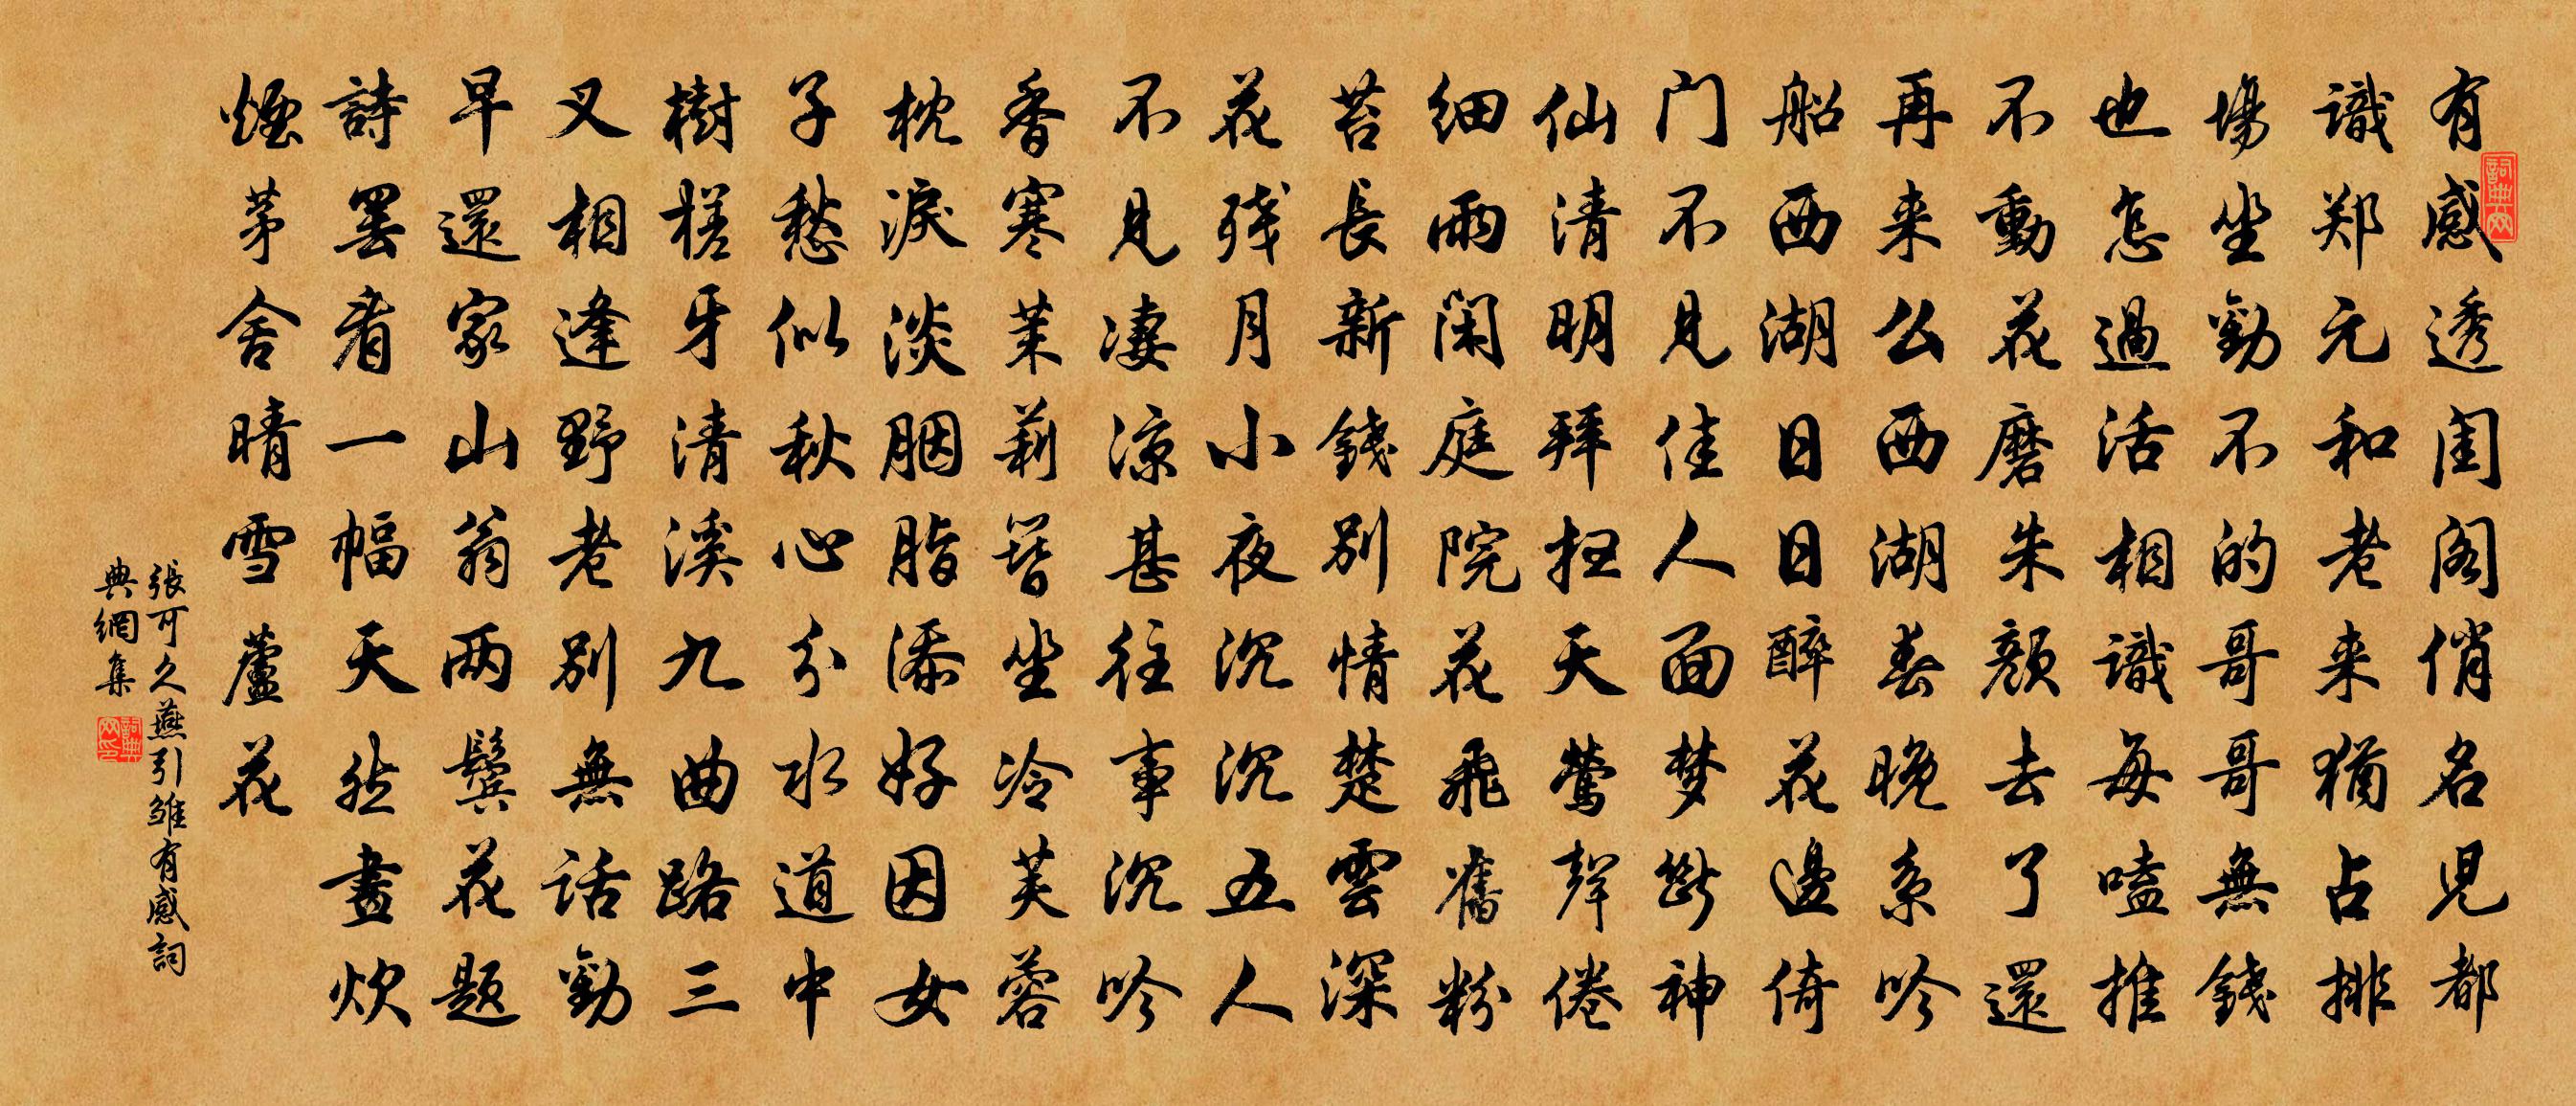 有感透闺阁俏名児都
識郑元和老来猶占排
場坐勸不的哥哥無錢
也怎過活相識每嗑推
不動花磨朱顔去了還
再来么西湖春晚系吟
船西湖日日醉花邊倚
门不見佳人面梦斷神
仙清明拜扫天莺聲倦
细雨闲庭院花飛舊粉
苔長新錢別情楚雲深
花残月小夜沉沉五人
不見凄凉甚往事沉吟
香寒茉莉簪坐冷芙蓉
枕淚淡胭脂添好因女
子愁似秋心分水道中
樹槎牙清溪九曲路三
叉相逢野老別無話勸
早還家山翁两鬓花题
詩罢看一幅天然畫炊
煙茅舍晴雪蘆花
張可久燕引雏有感詞
典網集
詞典网
詞典网印